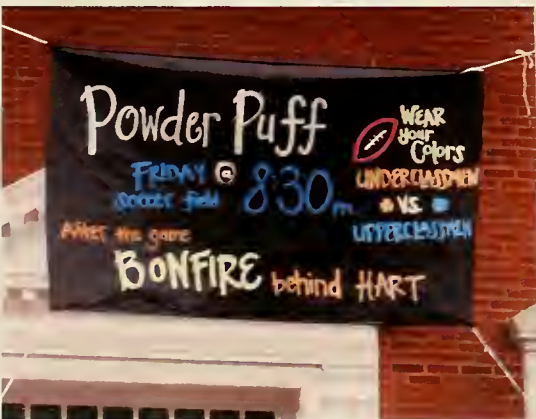 Powder Puff
WEAR
your
Colors
FRIDAY @ 8:30
soccer field
UNDERCLASSMEN
VS.
UPPERCLASSMEN
After the game
BONFIRE behind HART